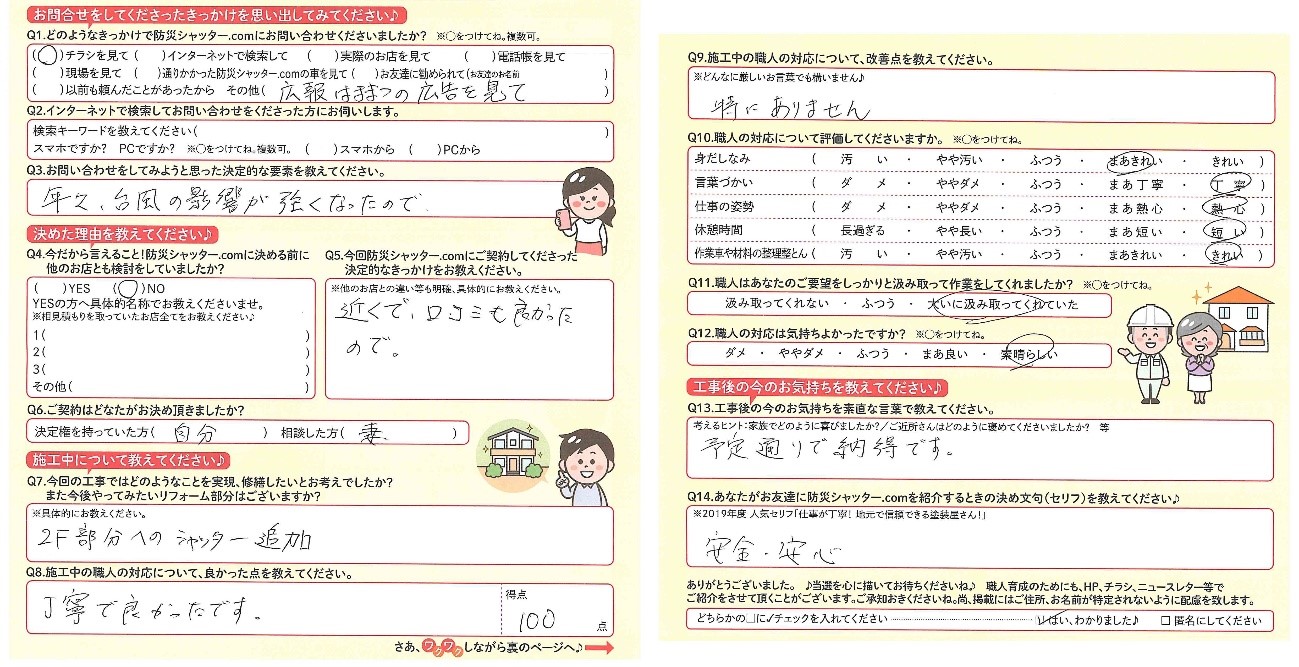 お問合せをしてくださったきっかけを思い出してみてください♪
Q1.どのようなきっかけで防災シャッター.comにお問い合わせくださいましたか? ※○をつけてね。複数可。
(○)チラシを見て ( )インターネットで検索して ( )実際のお店を見て ( )電話帳を見て
( )現場を見て ( )通りかかった防災シャッター.comの車を見て ( )お友達に勧められて(お友達のお名前 )
( )以前も頼んだことがあったから その他( 広報はままつの広告を見て )
Q2.インターネットで検索してお問い合わせをくださった方にお伺いします。
検索キーワードを教えてください( )
スマホですか? PCですか? ※○をつけてね。複数可。 ( )スマホから ( )PCから
Q3.お問い合わせをしてみようと思った決定的な要素を教えてください。
年々、台風の影響が強くなったので
決めた理由を教えてください♪
Q4.今だから言えること!防災シャッター.comに決める前に
他のお店とも検討をしていましたか?
( )YES (○)NO
YESの方へ具体的名称でお教えくださいませ。
※相見積もりを取っていたお店全てをお教えください♪
1( )
2( )
3( )
その他( )
Q5.今回防災シャッター.comにご契約してくださった
決定的なきっかけをお教えください。
※他のお店との違い等も明確、具体的にお教えください。
近くで、口コミも良かった
ので。
Q6.ご契約はどなたがお決め頂きましたか?
決定権を持っていた方( 自分 ) 相談した方( 妻 )
施工中について教えてください♪
Q7.今回の工事ではどのようなことを実現、修繕したいとお考えでしたか?
また今後やってみたいリフォーム部分はございますか?
※具体的にお教えください。
2F部分へのシャッター追加
Q8.施工中の職人の対応について、良かった点を教えてください。
丁寧で良かったです。
得点
100 点
さあ、ワクワクしながら裏のページへ♪
Q9.施工中の職人の対応について、改善点を教えてください。
※どんなに厳しいお言葉でも構いません♪
特にありません
Q10.職人の対応について評価してくださいますか。 ※○をつけてね。
身だしなみ ( 汚い ・ やや汚い ・ ふつう ・ まあきれい ・ きれい )
言葉づかい ( ダメ ・ ややダメ ・ ふつう ・ まあ丁寧 ・ 丁寧 )
仕事の姿勢 ( ダメ ・ ややダメ ・ ふつう ・ まあ熱心 ・ 熱心 )
休憩時間 ( 長過ぎる ・ やや長い ・ ふつう ・ まあ短い ・ 短い )
作業車や材料の整理整とん ( 汚い ・ やや汚い ・ ふつう ・ まあきれい ・ きれい )
Q11.職人はあなたのご要望をしっかりと汲み取って作業をしてくれましたか? ※○をつけてね。
汲み取ってくれない ・ ふつう ・ 大いに汲み取ってくれていた
Q12.職人の対応は気持ちよかったですか? ※○をつけてね。
ダメ ・ ややダメ ・ ふつう ・ まあ良い ・ 素晴らしい
工事後の今のお気持ちを教えてください♪
Q13.工事後の今のお気持ちを素直な言葉で教えてください。
考えるヒント:家族でどのように喜びましたか?/ご近所さんはどのように褒めてくださいましたか? 等
予定通りで納得です。
Q14.あなたがお友達に防災シャッター.comを紹介するときの決め文句(セリフ)を教えてください♪
※2019年度 人気セリフ「仕事が丁寧! 地元で信頼できる塗装屋さん!」
安全・安心
ありがとうございました。 ♪当選を心に描いてお待ちくださいね♪ 職人育成のためにも、HP、チラシ、ニュースレター等で
ご紹介をさせて頂くことがございます。ご承知おきくださいね。尚、掲載にはご住所、お名前が特定されないように配慮を致します。
どちらかの□に✓チェックを入れてください はい、わかりました♪ □ 匿名にしてください